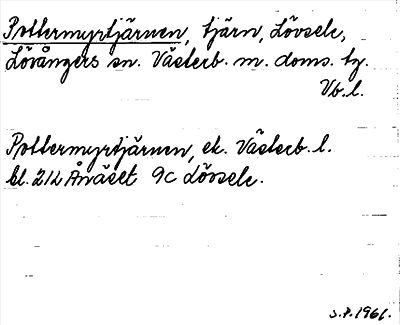 Pottermyrtjärnen, tjärn, Lövsele,
Lövångers sn. Västerb. m. doms. tg.
Vb. l.
Pottermyrtjärnen, ek. Västerb. l.
bl. 212 Ånäset 9c Lövsele.
S.P. 1961.